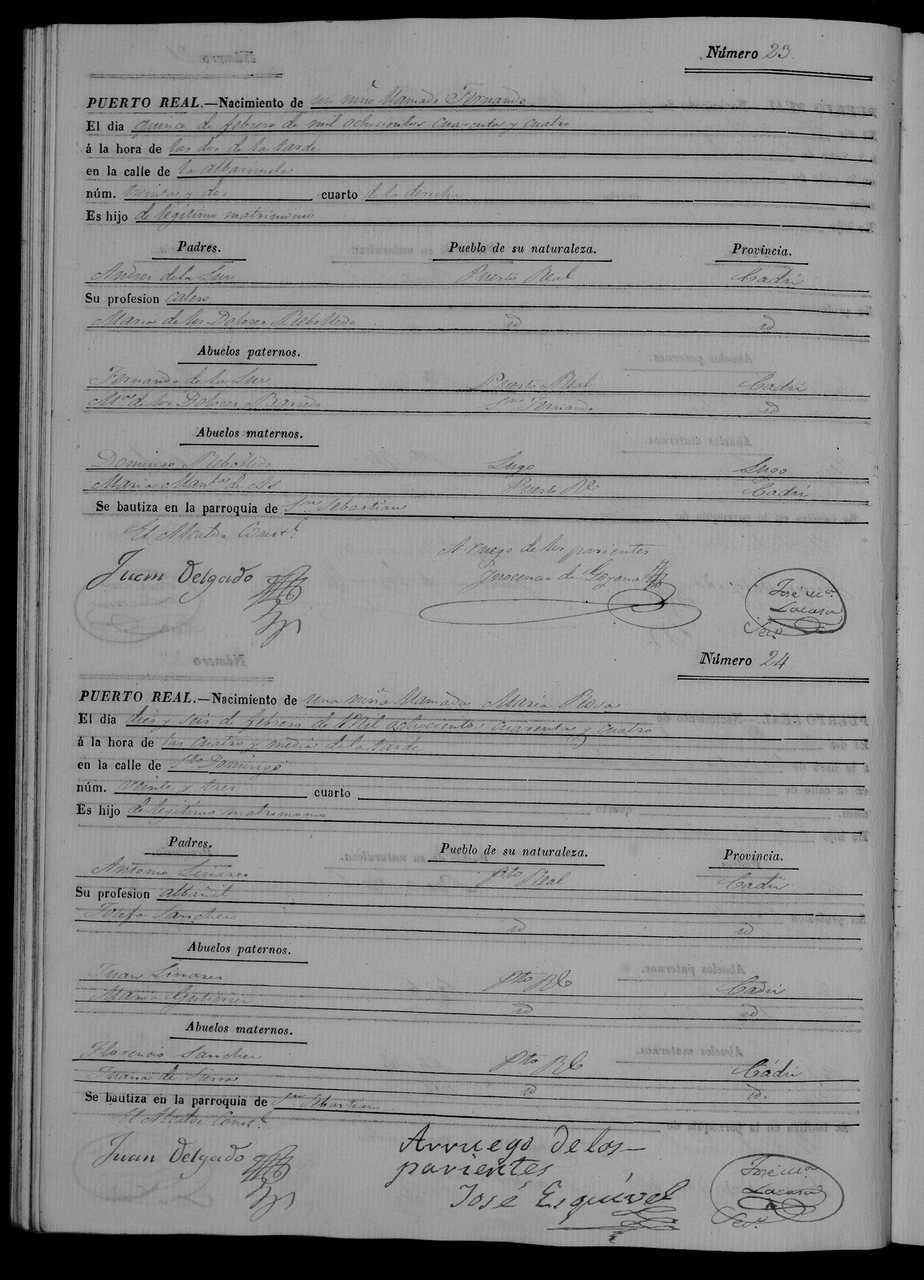 Número 23
PUERTO REAL.—Nacimiento de un niño llamado Fernando
El dia quince de febrero de mil ochocientos cuarenta y cuatro
á la hora de las dos de la tarde
en la calle de la
núm. treinta y dos cuarto de la derecha
Es hijo de legitimo matrimonio
Padres. Pueblo de su naturaleza. Provincia.
Andres de la Puerto Real Cadiz
Su profesion
Maria de los Dolores id id
Abuelos paternos.
Fernando de la Puerto Real Cadiz
Mª de los Dolores Sn Fernando id
Abuelos maternos.
Domingo Lugo Lugo
Maria Puerto Rl Cadiz
Se bautiza en la parroquia de San Sebastian
El Alcalde Const.l
A ruego de los parientes
Juan Delgado de Lozano José Mª Lacasa
Seco.
Número 24
PUERTO REAL.—Nacimiento de una niña llamada Maria Rosa
El día diez y seis de febrero de mil ochocientos cuarenta y cuatro
á la hora de las cuatro y media de la tarde
en la calle de Sto Domingo
núm. veinte y tres cuarto
Es hijo de legitimo matrimonio
Padres. Pueblo de su naturaleza. Provincia.
Antonio Linares Pto Real Cadiz
Su profesion albañil
Josefa Sanchez id id
Abuelos paternos.
Juan Linares Pto Rl Cadiz
Maria Gutierrez id id
Abuelos maternos.
Florencio Sanchez Pto Rl Cádiz
Juana de id id.
Se bautiza en la parroquia de San Sebastian
El Alcalde Const.l
Juan Delgado Arruego de los
parientes
José Esquivel José Mª
Lacasa
Seco.